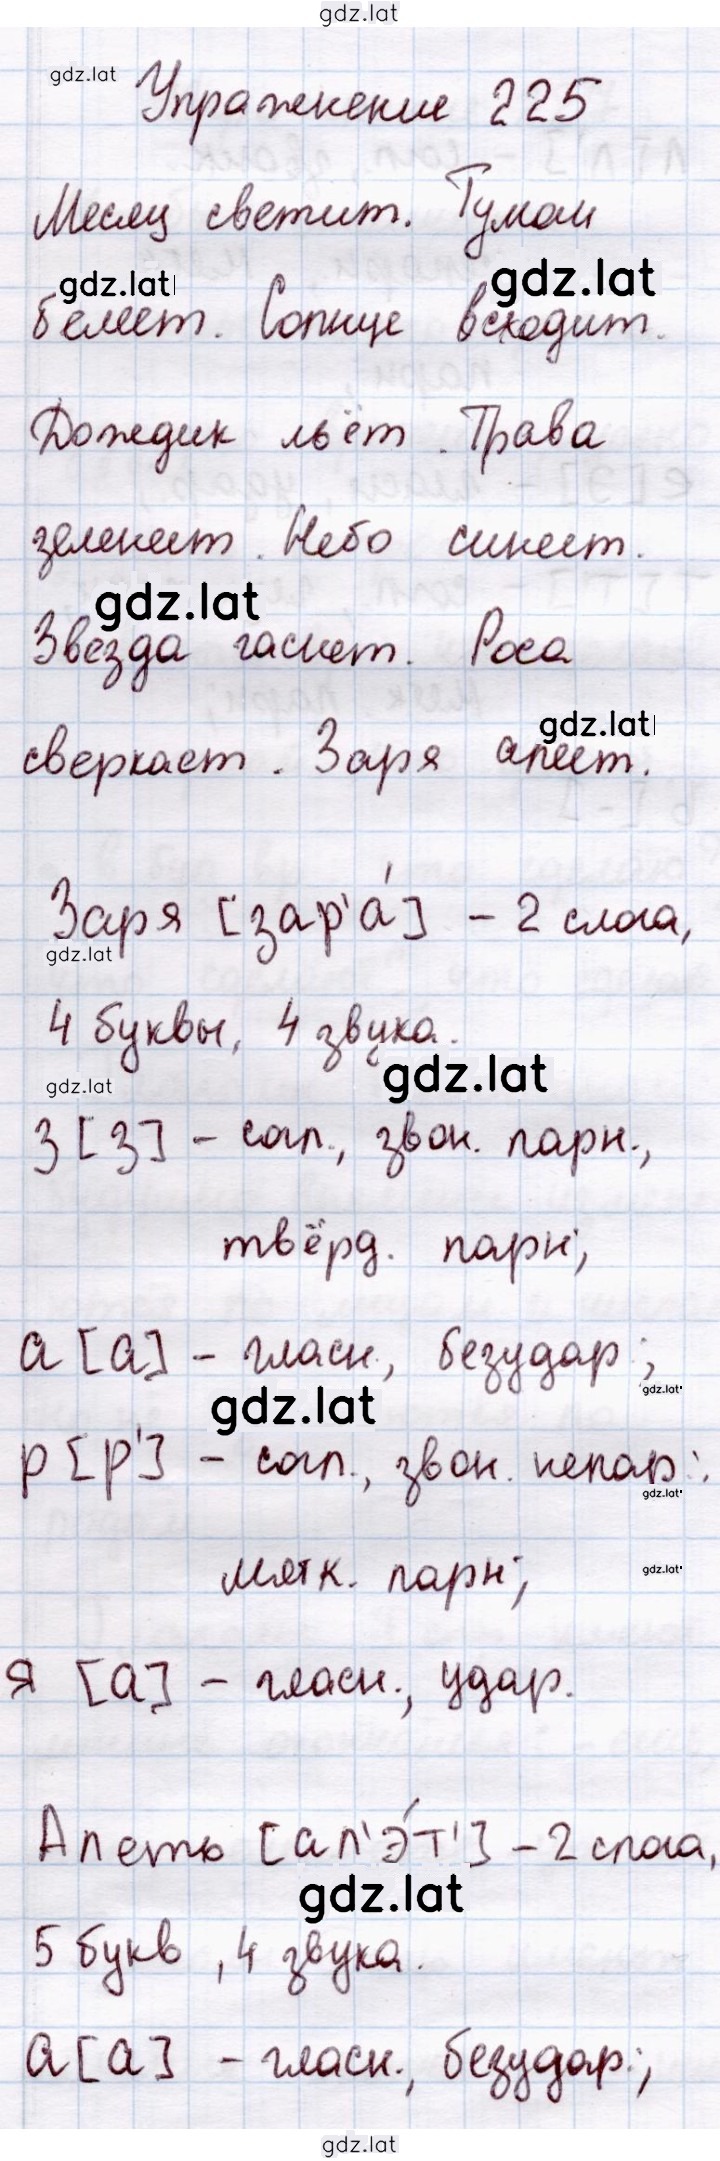 gdz.lat
gdz.lat
Упражнение 225
Месяц светит. Туман
gdz.lat gdz.lat
белеет. Солнце всходит.
Дождик льёт. Трава
зеленеет. Небо синеет.
gdz.lat
Звезда гаснет. Роса
gdz.lat
сверкает. Заря алеет.
Заря [зар'а́] - 2 слога,
gdz.lat
4 буквы, 4 звука.
gdz.lat gdz.lat
з [з] - согл., звон. парн.,
твёрд. парн;
а [а] - гласн., безудар.;
gdz.lat gdz.lat
р [р'] - согл., звон. непар.:
gdz.lat
мягк. парн;
gdz.lat
я [а] - гласн., удар.
Алеть [ал'э́т'] - 2 слога,
gdz.lat
5 букв, 4 звука.
а [а] - гласн., безудар.;
gdz.lat